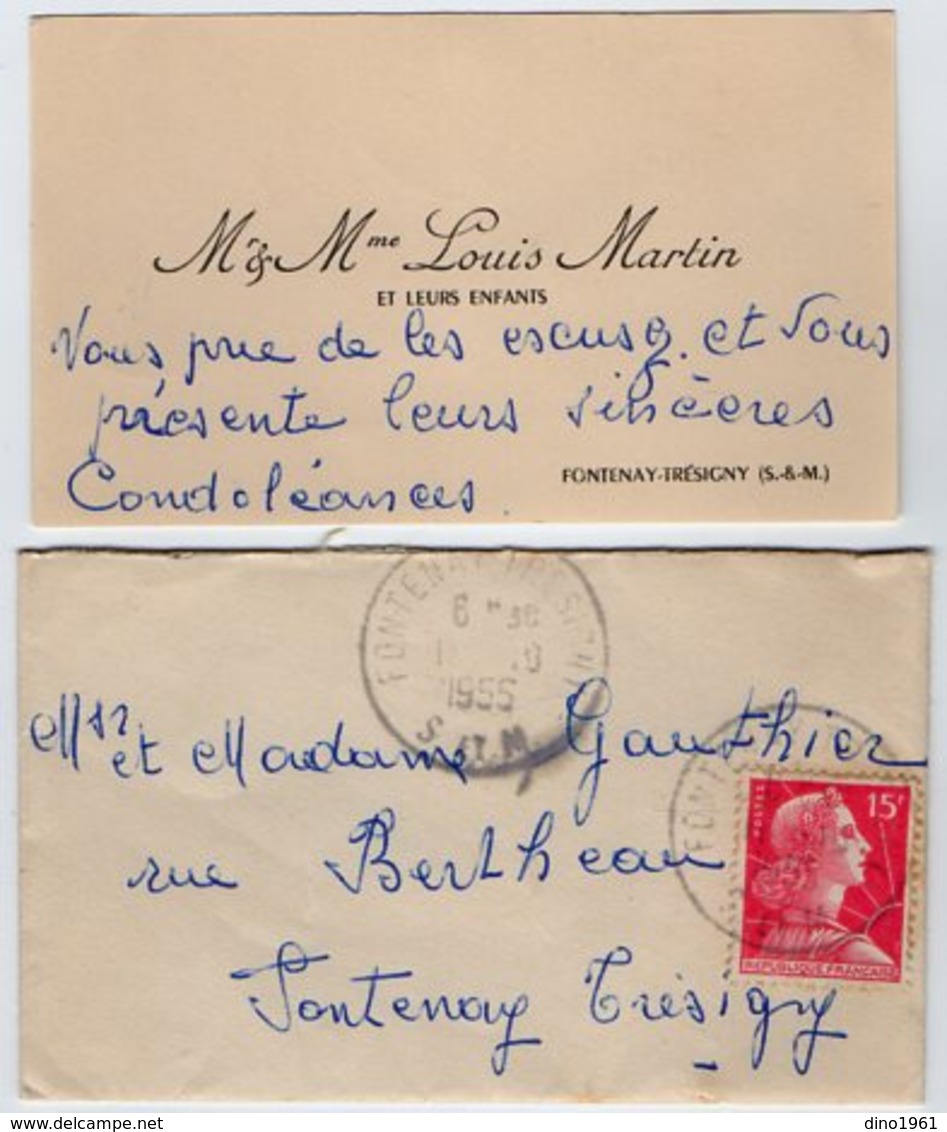 Mr & Mme Louis Martin
ET LEURS ENFANTS
Vous prie de les escuse, et Vous
présente leurs sincères
Condoléances.
FONTENAY-TRÉSIGNY (S.-&-M.)
FONTENAY-TRÉSIGNY
1955
S. ET M.
Msr et Madame Gauthier
rue Bertheau
Fontenay Trésigny
FONTE
POSTES
15F
REPUBLIQUE FRANÇAISE
dino1961